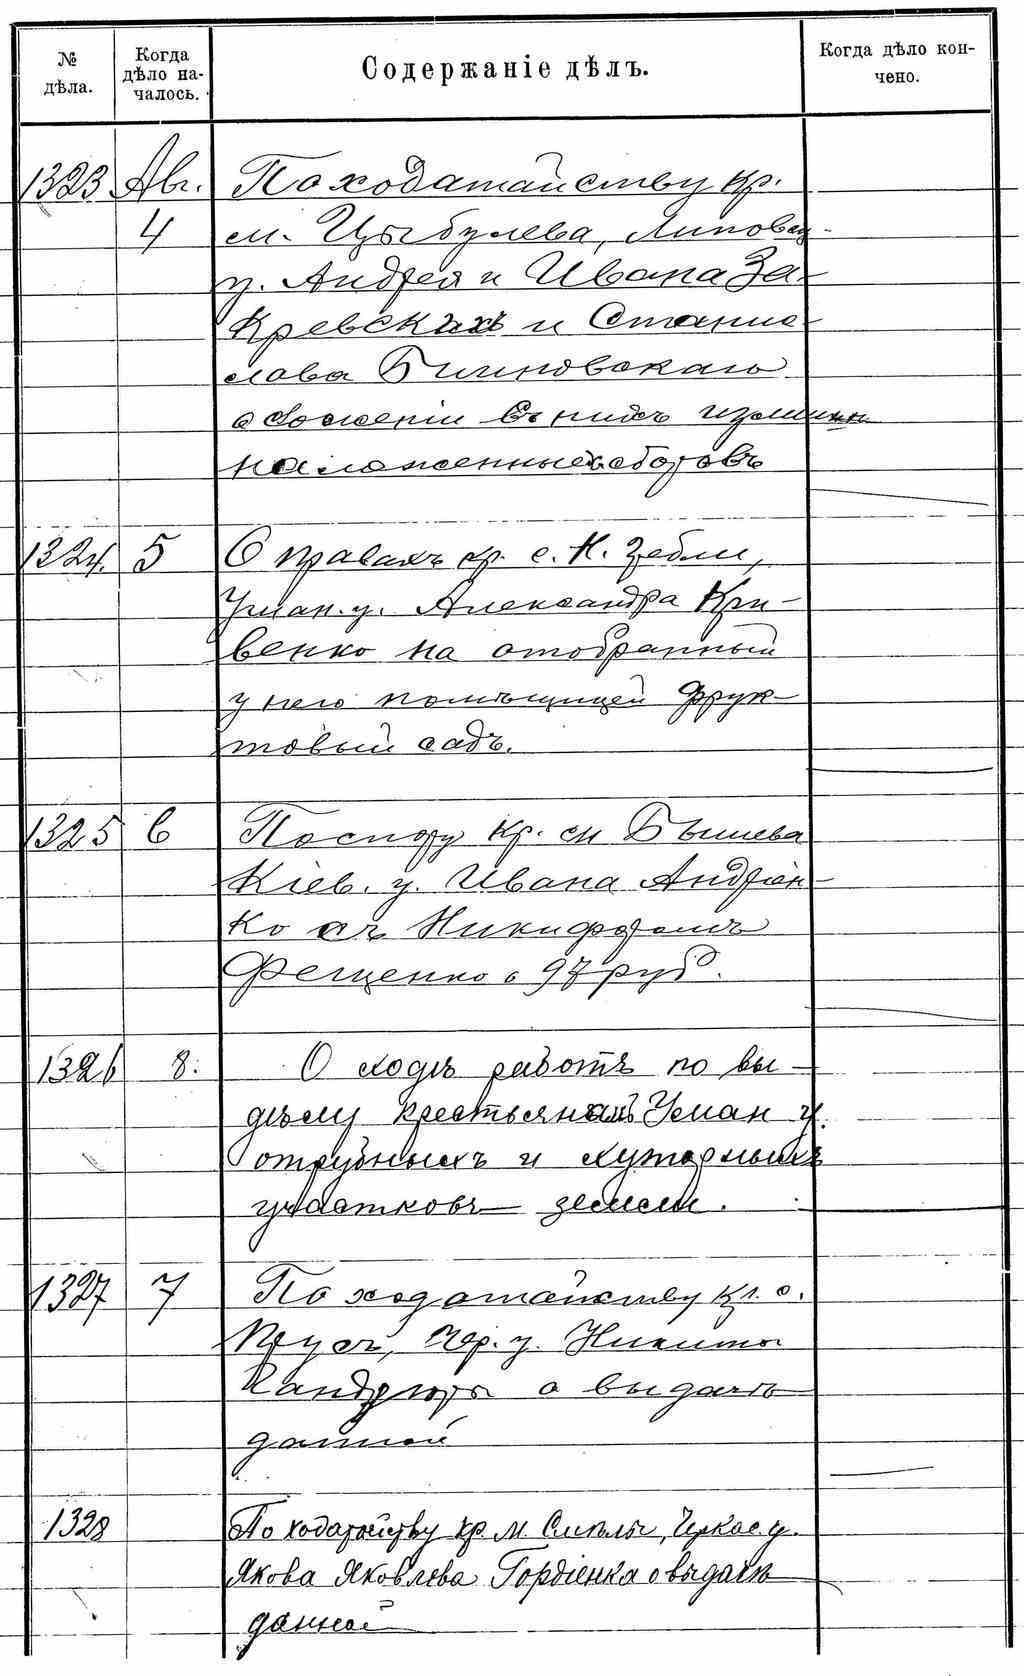 № дѣла.
Когда дѣло на-
чалось.
Содержаніе дѣлъ.
Когда дѣло кон-
чено.
1323 Авг. По ходатайству кр.
4 м. Цыбулева, Липовец.
у. Андрея и Ивана За-
кревскихъ и Станис-
лава
о сложеніи съ нихъ излишне
наложенныхъ сборовъ
1324. 5 О правахъ кр. с. К. Гребли,
Уман. у. Александра Кри-
венко на отобранный
у него помѣщицей фрук-
товый садъ.
1325 6 По спору кр. м. Бышева
Кіев. у. Ивана Андріен-
ко съ Никифоромъ
Фещенко о 97 руб.
1326 8. О ходѣ работъ по вы-
дѣлу крестьянамъ Уман у.
отрубныхъ и хуторныхъ
участковъ земли.
1327 7 По ходатайству кр. с.
Русъ, Чер. у. Никиты
о выдачѣ
данной
1328 По ходатайству кр. м. Смѣлы, Черкас. у.
Якова Яковлева Гордіенка о выдачѣ
данной